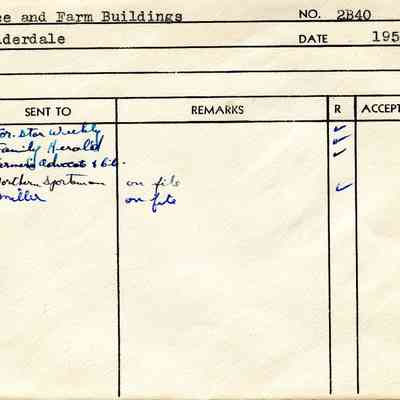 ce and Farm Buildings NO. 2B40
uderdale DATE 195
SENT TO REMARKS R ACCEPT
or. Star Weekly ✓
Family Herald ✓
armer's Advocate & ✓
Northern Sportsman on file ✓
miller on file